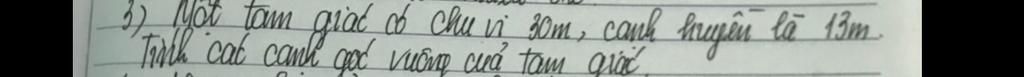 3) Một tam giác có chu vi 30m, cạnh huyền là 13m.
Tính các cạnh góc vuông của tam giác.